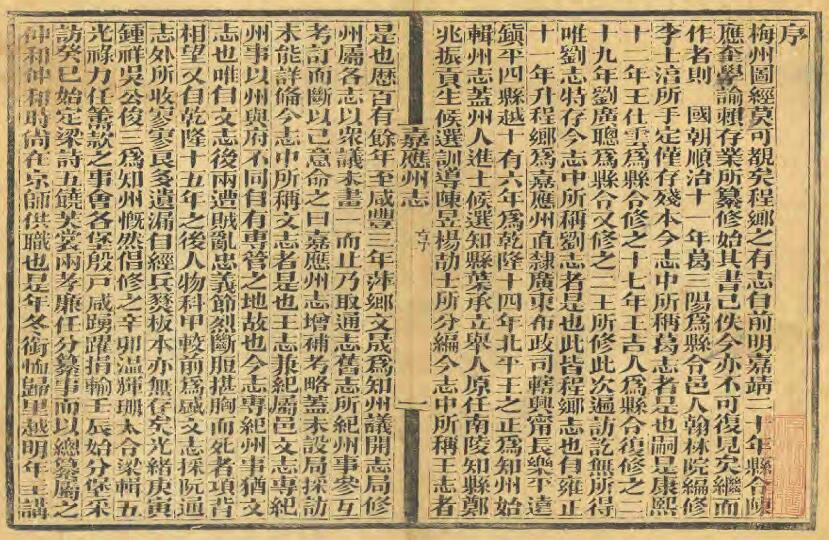 序
梅州圖經莫可覩矣程鄉之有志自前明嘉靖二十年縣令陳
應奎學諭賴存業所纂修始其書已佚今亦不可復見矣繼而
作者則 國朝順治十一年葛三陽爲縣令邑人翰林院編修
李士淯所手定僅存殘本今志中所稱葛志者是也嗣是康熙
十二年王仕雲爲縣令修之十七年王吉人爲縣令復修之二
十九年劉廣聰爲縣令又修之二王所修此次遍訪訖無所得
唯劉志特存今志中所稱劉志者是也此皆程鄉志也自雍正
十一年升程鄉爲嘉應州直隸廣東布政司轄興甯長樂平遠
鎮平四縣越十有六年爲乾隆十四年北平王之正爲知州始
輯州志蓋州人進士候選知縣葉承立舉人原任南陵知縣鄭
兆振貢生候選訓導陳昱楊劼士所分編今志中所稱王志者
嘉應州志
序
一
是也歷百有餘年至咸豐三年萍鄉文晟爲知州議開志局修
州屬各志以衆議未畫一而止乃取通志舊志所紀州事參互
考訂而斷以己意命之曰嘉應州志增補考略蓋未設局採訪
未能詳備今志中所稱文志者是也王志兼紀屬邑文志專紀
州事以州與府不同自有專管之地故也今志專紀州事猶文
志也唯自文志後兩遭賊亂忠義節烈斷脰揕胸而死者項背
相望又自乾隆十五年之後人物科甲較前爲盛文志採阮通
志外所收寥寥良多遺漏自經兵燹板本亦無存矣光緒庚寅
鍾祥吳公俊三爲知州慨然倡修之辛卯溫輝珊太令梁輯五
光祿力任籌款之事會各堡殷戶咸踴躍捐輸壬辰始分堡采
訪癸巳始定梁詩五饒芙裳兩孝廉任分纂事而以總纂屬之
仲和仲和時尚在京師供職也是年冬銜恤歸里越明年主講